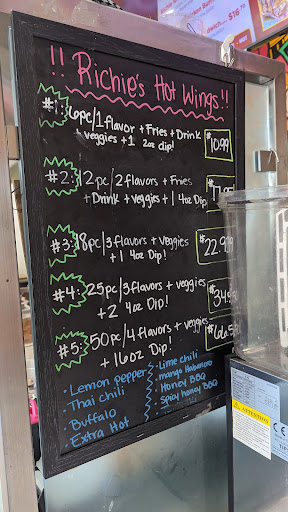 !! Richie's Hot Wings!!
#1: 6pc/1 flavor + Fries + Drink $10.99
+ veggies + 1 2oz dip!
#2: 12pc/2 flavors + Fries
+ Drink + veggies + 1 4oz Dip!
#3: 18pc/3 flavors + veggies $22.99
+ 1 4oz Dip!
#4: 25pc/3 flavors + veggies
+ 2 4oz Dip!
#5: 50pc/4 flavors + veggies
+ 16oz Dip!
· Lemon pepper
· Thai chili
· Buffalo
· Extra Hot
· Lime chili
· mango Habanero
· Honey BBQ
· Spicy honey BBQ
ATTENTION
CE